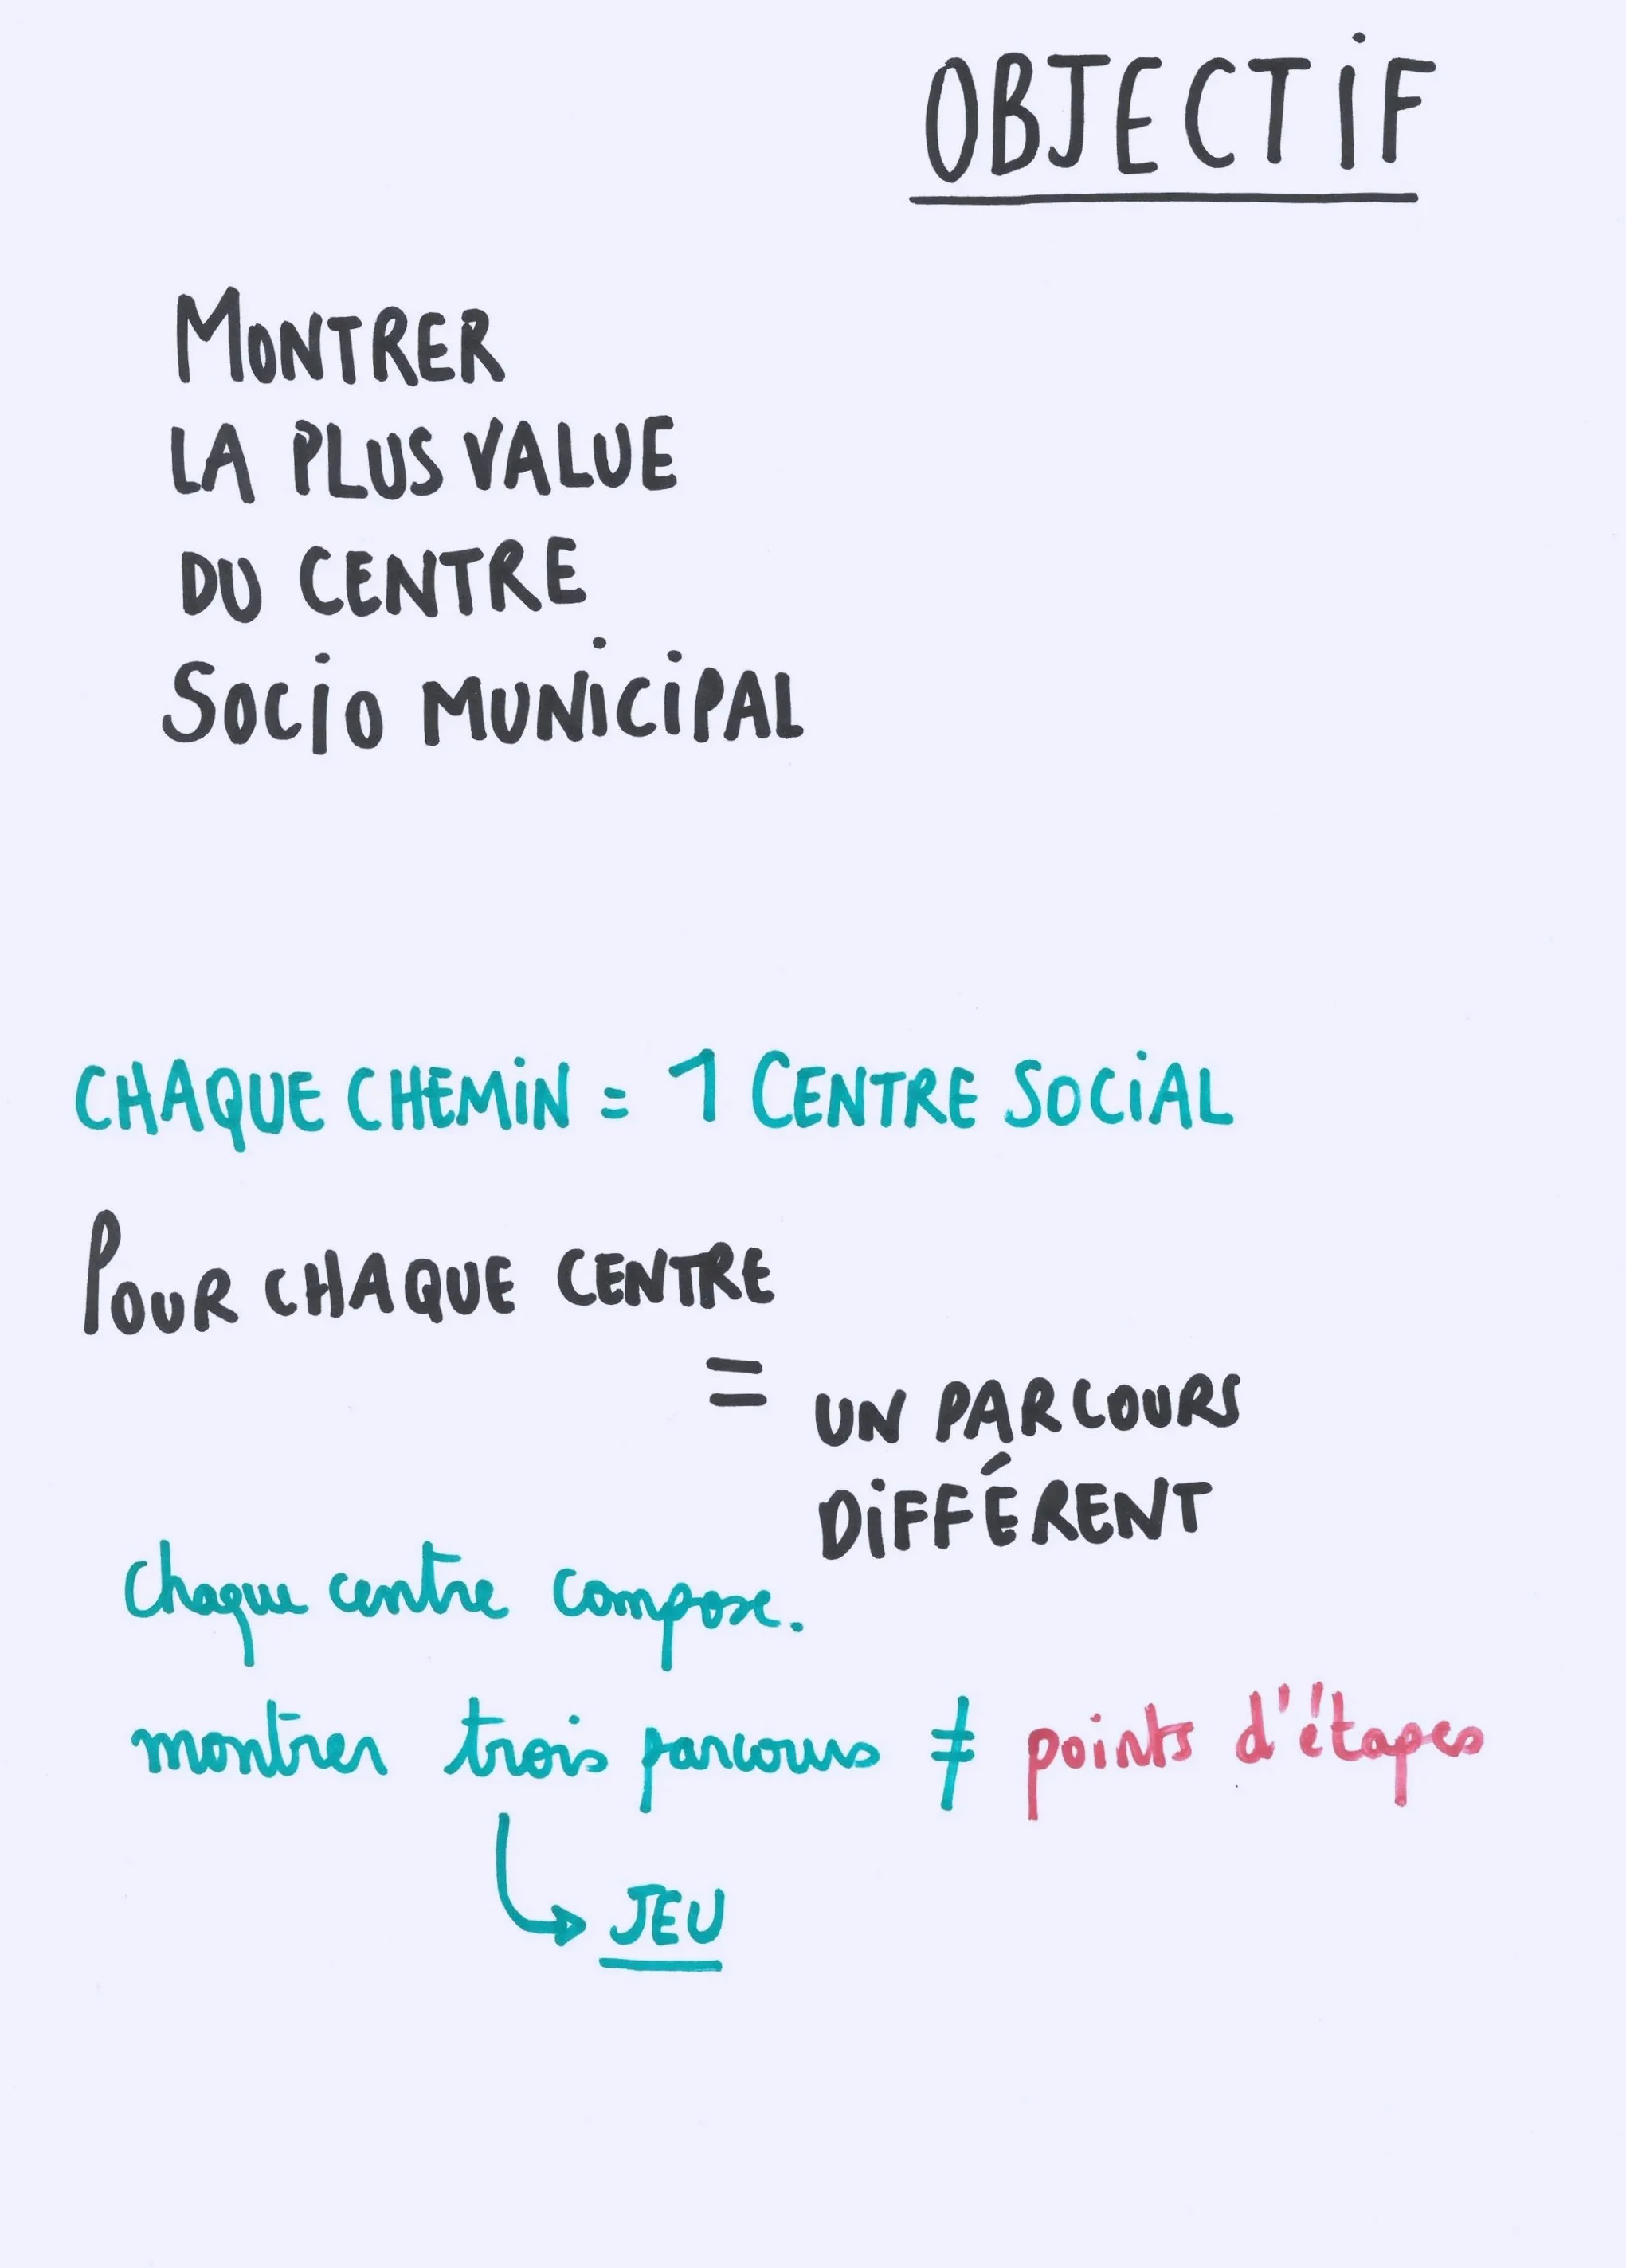 OBJECTIF
MONTRER
LA PLUS VALUE
DU CENTRE
SOCIO MUNICIPAL
CHAQUE CHEMIN = 1 CENTRE SOCIAL
POUR CHAQUE CENTRE
= UN PARCOURS
DIFFÉRENT
chaque centre compose.
montrer trois parcours ≠ points d'étapes
JEU